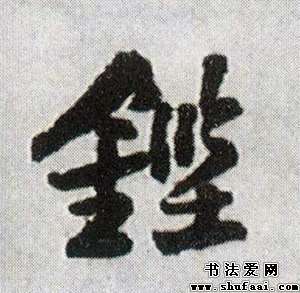 鏗
书法爱网
www.shufaai.com